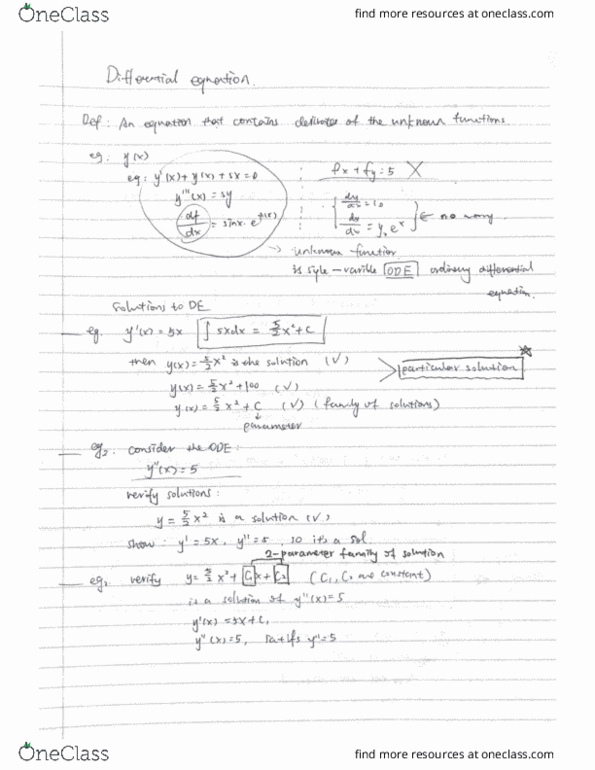 OneClass
find more resources at oneclass.com
Differential equation.
Def: An equation that contains of the unknown functions.
eg: y(x)
eg: y'(x) + y(x) + 5x = 0
fx + fy = 5 X
y'''(x) = 5y
df/dx = sinx · e^f(x)
dy/dx = y, e^x } ← no
→ unknown function
is – ODE ordinary differential
equation.
Solutions to DE
eg. y'(x) = 5x ∫ 5xdx = 5/2 x² + C
then y(x) = 5/2 x² is the solution (√)
particular solution
y(x) = 5/2 x² + 100 (√)
y(x) = 5/2 x² + C (√) (family of solutions)
parameter
eg2. consider the ODE:
y''(x) = 5
verify solutions:
y = 5/2 x² is a solution (√)
show: y' = 5x, y'' = 5, so it's a sol
2-parameter family of solution
eg, verify y = 5/2 x² + C1x + C2 (C1, C2 are constant)
is a solution of y''(x) = 5
y'(x) = 5x + C1
y''(x) = 5, y'' = 5
OneClass
find more resources at oneclass.com